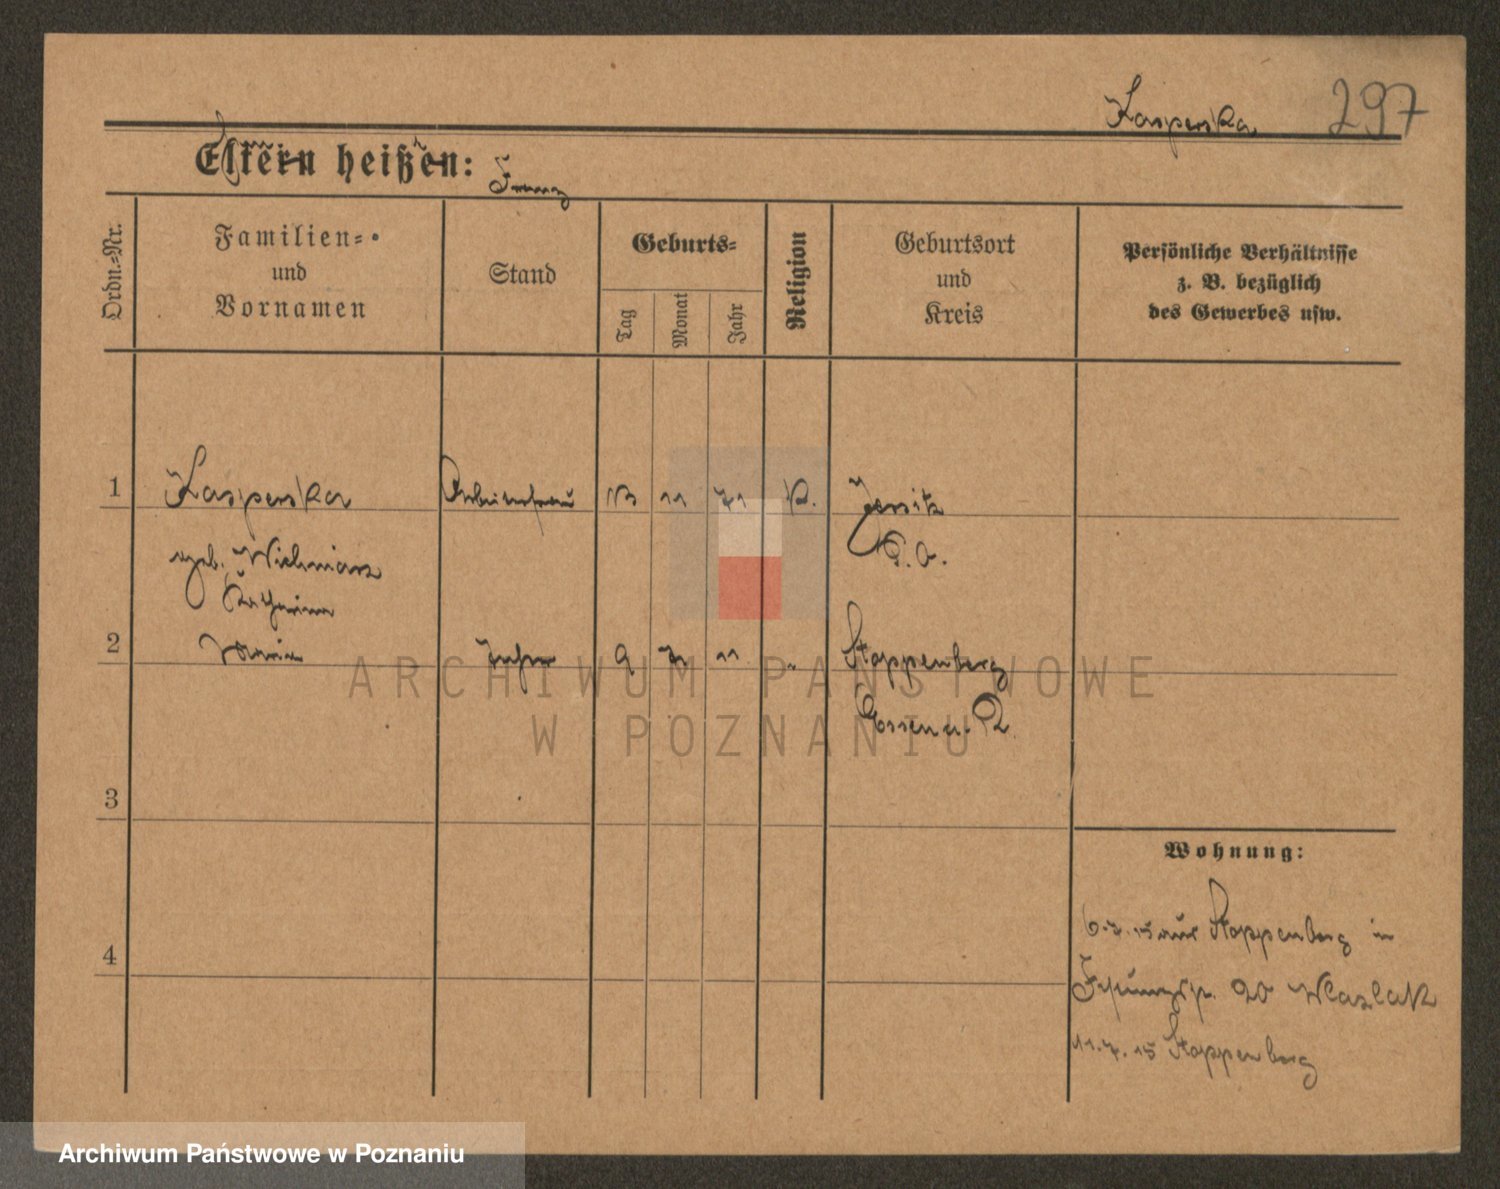 Kasperska 297
Eltern heißen:
Franz
Ordn.=Nr.
Familien=
und
Vornamen
Stand
Geburts=
Tag
Monat
Jahr
Religion
Geburtsort
und
Kreis
Persönliche Verhältnisse
z. B. bezüglich
des Gewerbes usw.
1 Kasperska Arbeiterfrau 13 11 71 K. Jersitz
P. O.
geb.
2 Maria 9 7 11 " Stoppenberg
Essen a. R.
3
4
Wohnung:
6.7.15 aus Stoppenberg in
20 Wlazlak
11.7.15 Stoppenberg
ARCHIWUM PAŃSTWOWE
W POZNANIU
Archiwum Państwowe w Poznaniu